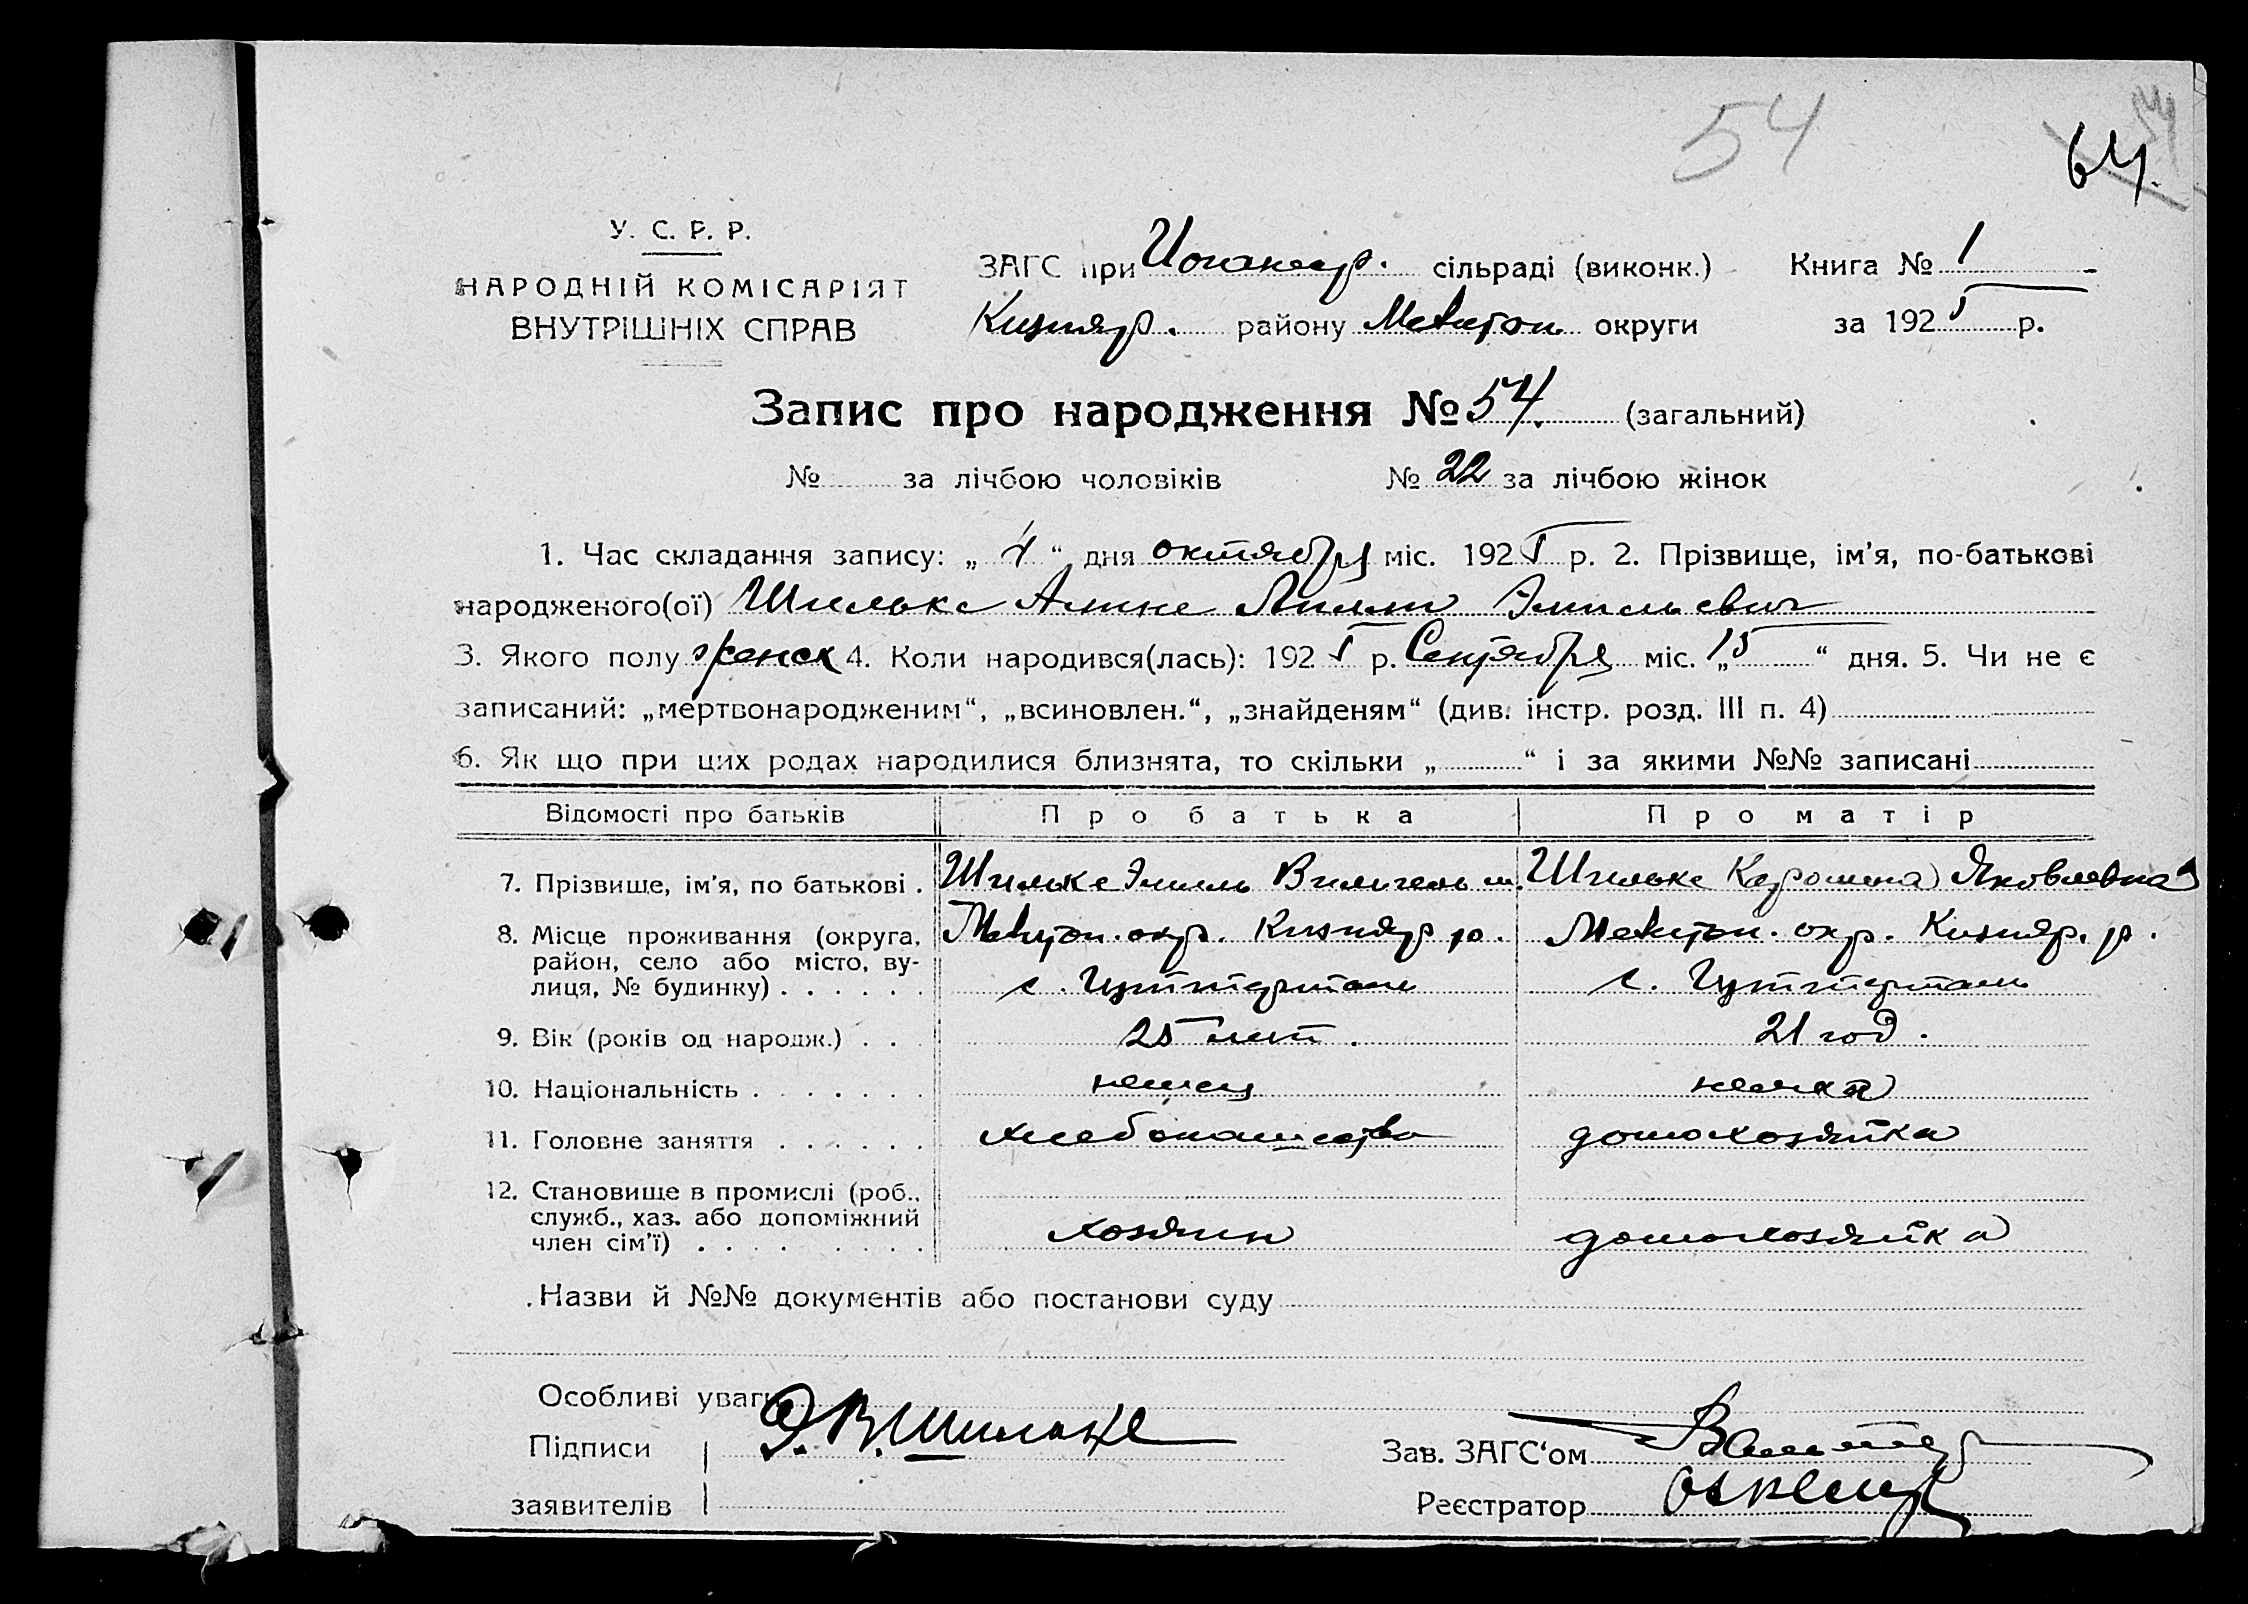 54
64.
У. С. Р. Р.
НАРОДНІЙ КОМІСАРІЯТ
ВНУТРІШНІХ СПРАВ
ЗАГС при сільраді (виконк.) Книга № 1
Кизияр. району Мелитоп округи за 1925 р.
Запис про народження № 54. (загальний)
№ за лічбою чоловіків № 22 за лічбою жінок
1. Час складання запису: „ 4 “ дня октября міс. 1925 р. 2. Прізвище, ім'я, по-батькові
народженого(ої) Шильке Эмильевич
3. Якого полу женск 4. Коли народився(лась): 1925 р. Сентября міс. „15“ дня. 5. Чи не є
записаний: „мертвонародженим“, „всиновлен.“, „знайденям“ (див. інстр. розд. III п. 4)
6. Як що при цих родах народилися близнята, то скільки „ “ і за якими №№ записані
Відомості про батьків Про батька Про матір
7. Прізвище, ім'я, по батькові . Шильке Эмиль Вильгельм. Шильке Каролина Яковлевна
8. Місце проживання (округа, Мелитоп. окр. Кизияр р. Мелитоп. окр. Кизияр. р.
район, село або місто, ву-
лиця, № будинку) . . . . . . с. с.
9. Вік (років од народж.) . . . 25 лет. 21 год.
10. Національність . . . . . . . немец немка
11. Головне заняття . . . . . . хлебопашество домохозяйка
12. Становище в промислі (роб.,
служб., хаз. або допоміжний
член сім'ї) . . . . . . . . хозяин домохозяйка
Назви й №№ документів або постанови суду
Особливі уваги
Підписи Э. В. Шильке Зав. ЗАГС'ом
заявителів Реєстратор